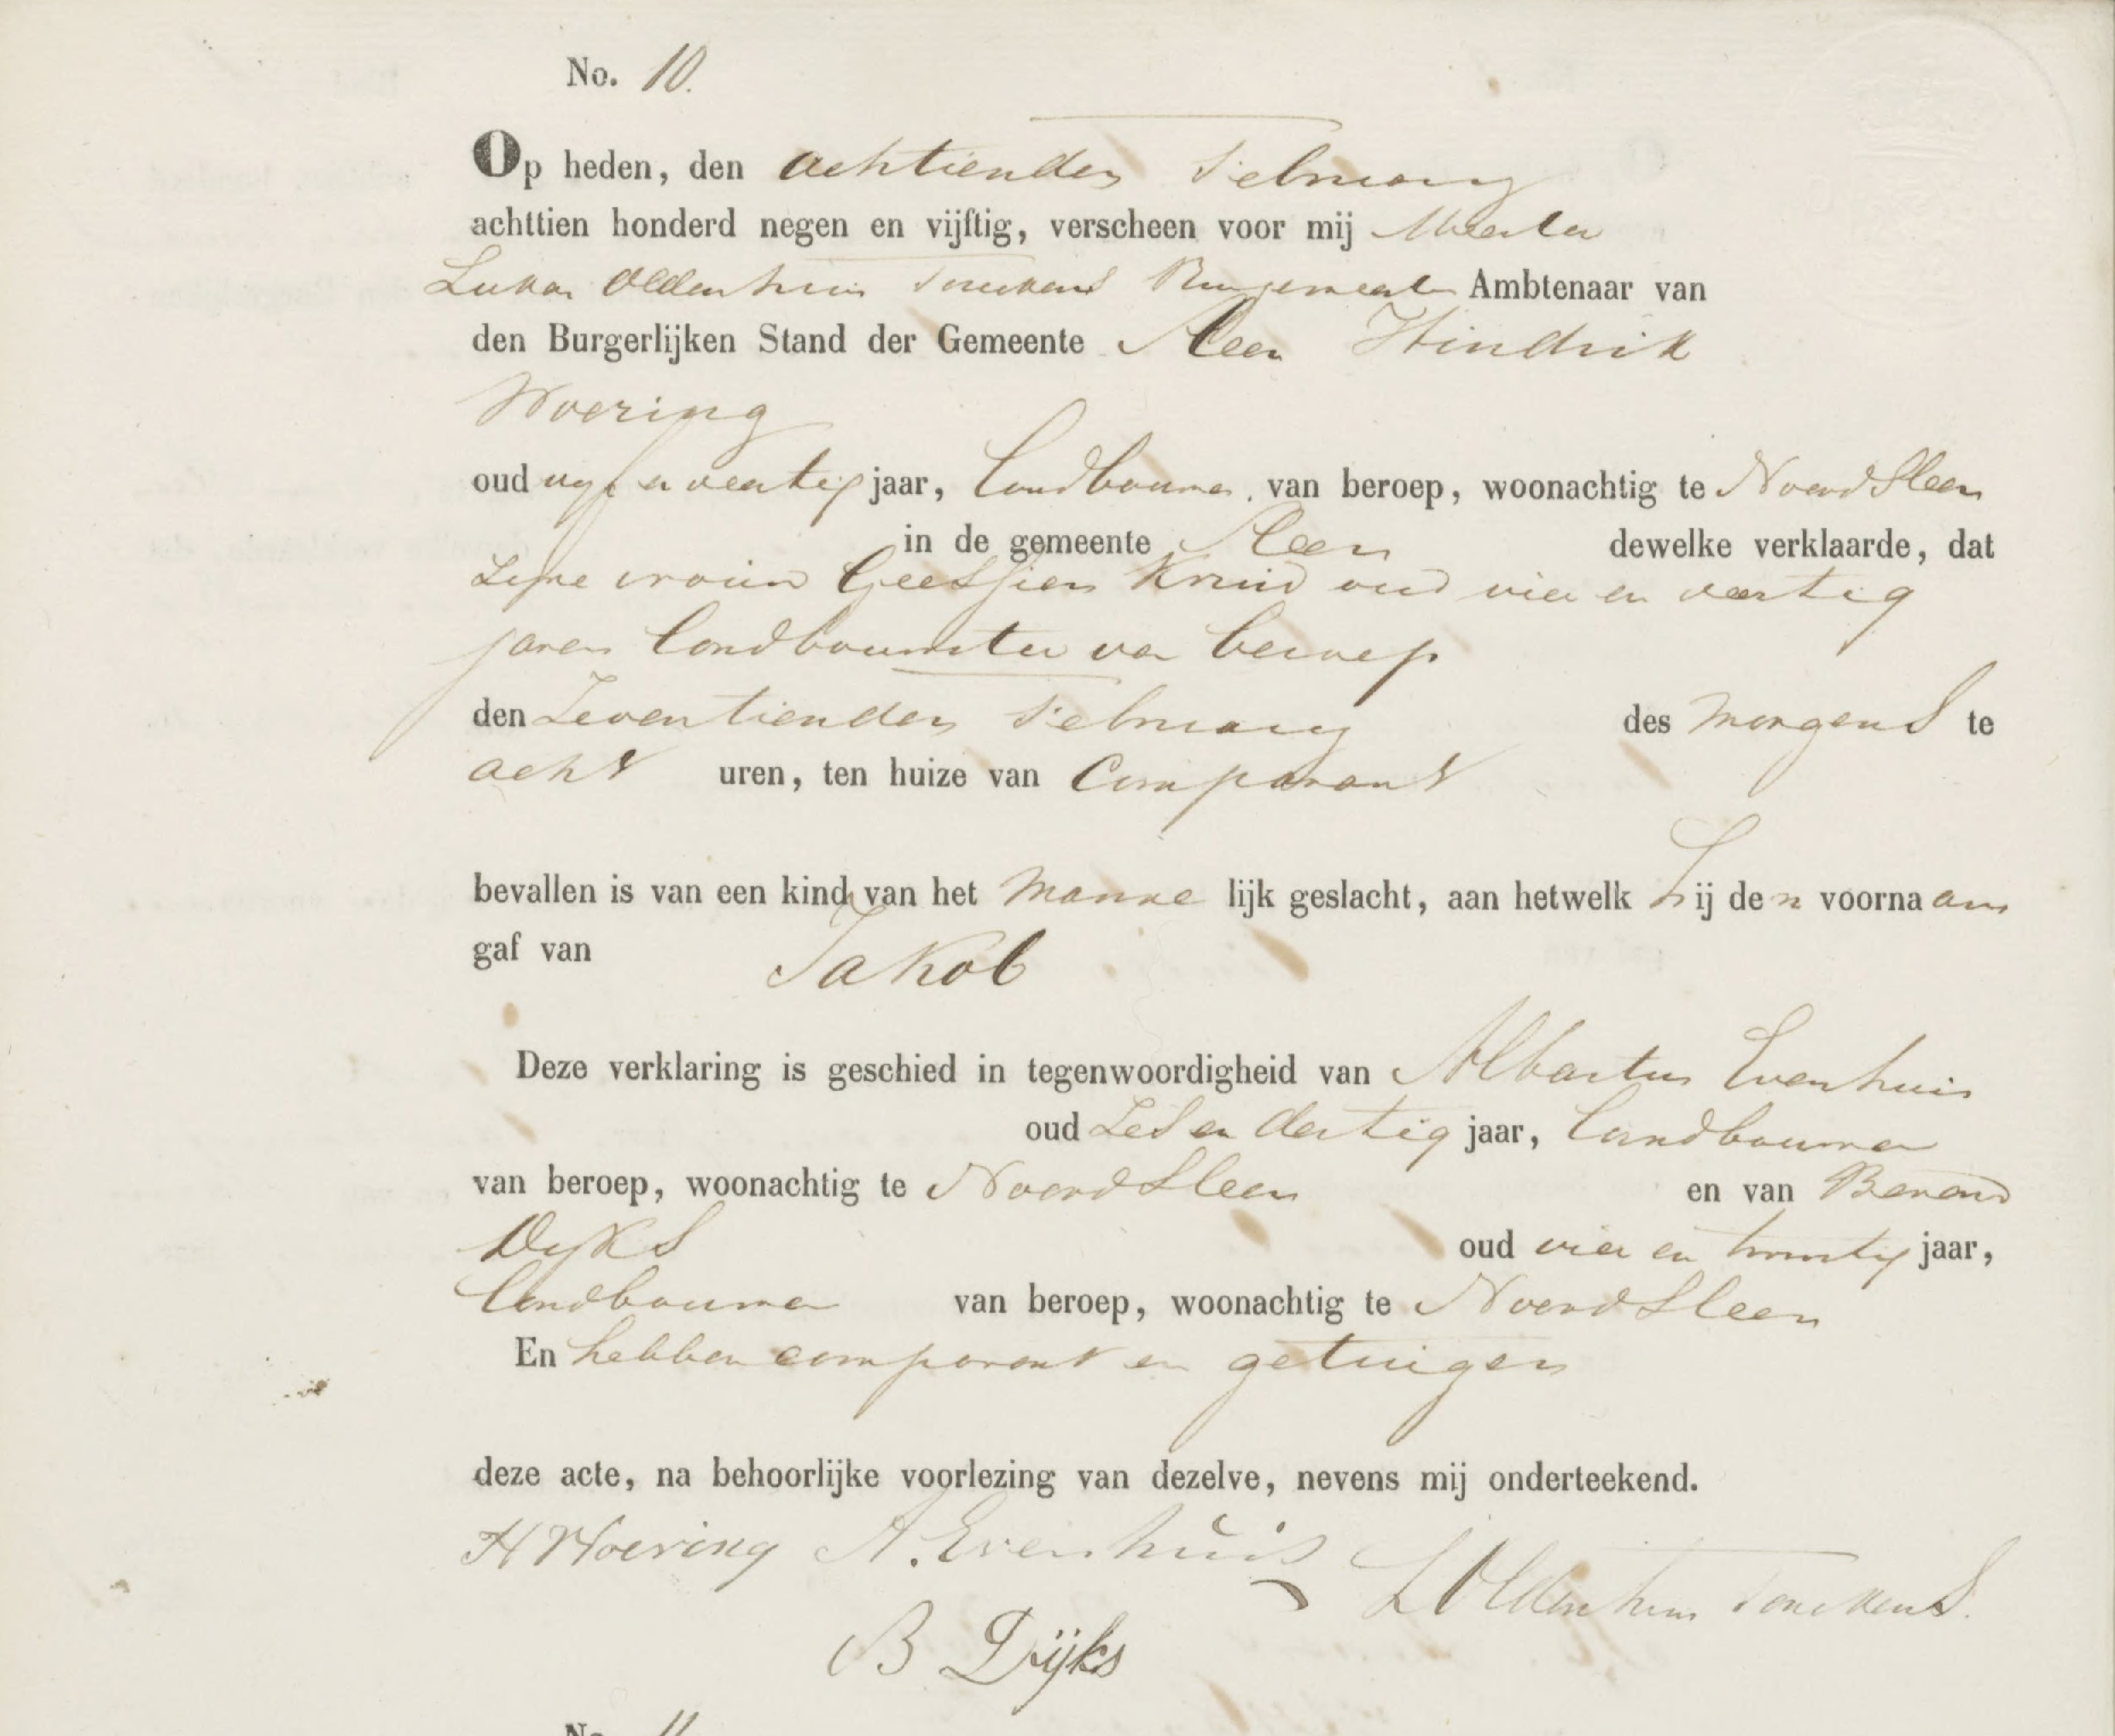 No. 10.
Op heden, den achtienden Februarij
achttien honderd negen en vijftig, verscheen voor mij Meester
Lukas Oldenhuis Tonckens Burgemeester Ambtenaar van
den Burgerlijken Stand der Gemeente Sleen Hindrik
Woering
oud vyf en veertig jaar, Landbouwer van beroep, woonachtig te Noord Sleen
in de gemeente Sleen dewelke verklaarde, dat
zyne vrouw Geessien Kruid oud vier en veertig
jaren Landbouwster van beroep
den Zeventienden Februarij des morgens te
acht uren, ten huize van Comparant
bevallen is van een kind van het manne lijk geslacht, aan hetwelk hij den voornaam
gaf van Jakob
Deze verklaring is geschied in tegenwoordigheid van Albartus Evenhuis
oud Zes en dertig jaar, Landbouwer
van beroep, woonachtig te Noord Sleen en van Berend
Dyks oud vier en twintig jaar,
Landbouwer van beroep, woonachtig te Noord Sleen
En hebben comparant en getuigen
deze acte, na behoorlijke voorlezing van dezelve, nevens mij onderteekend.
H Woering A. Evenhuis L Oldenhuis Tonckens.
B Dijks
No. 11